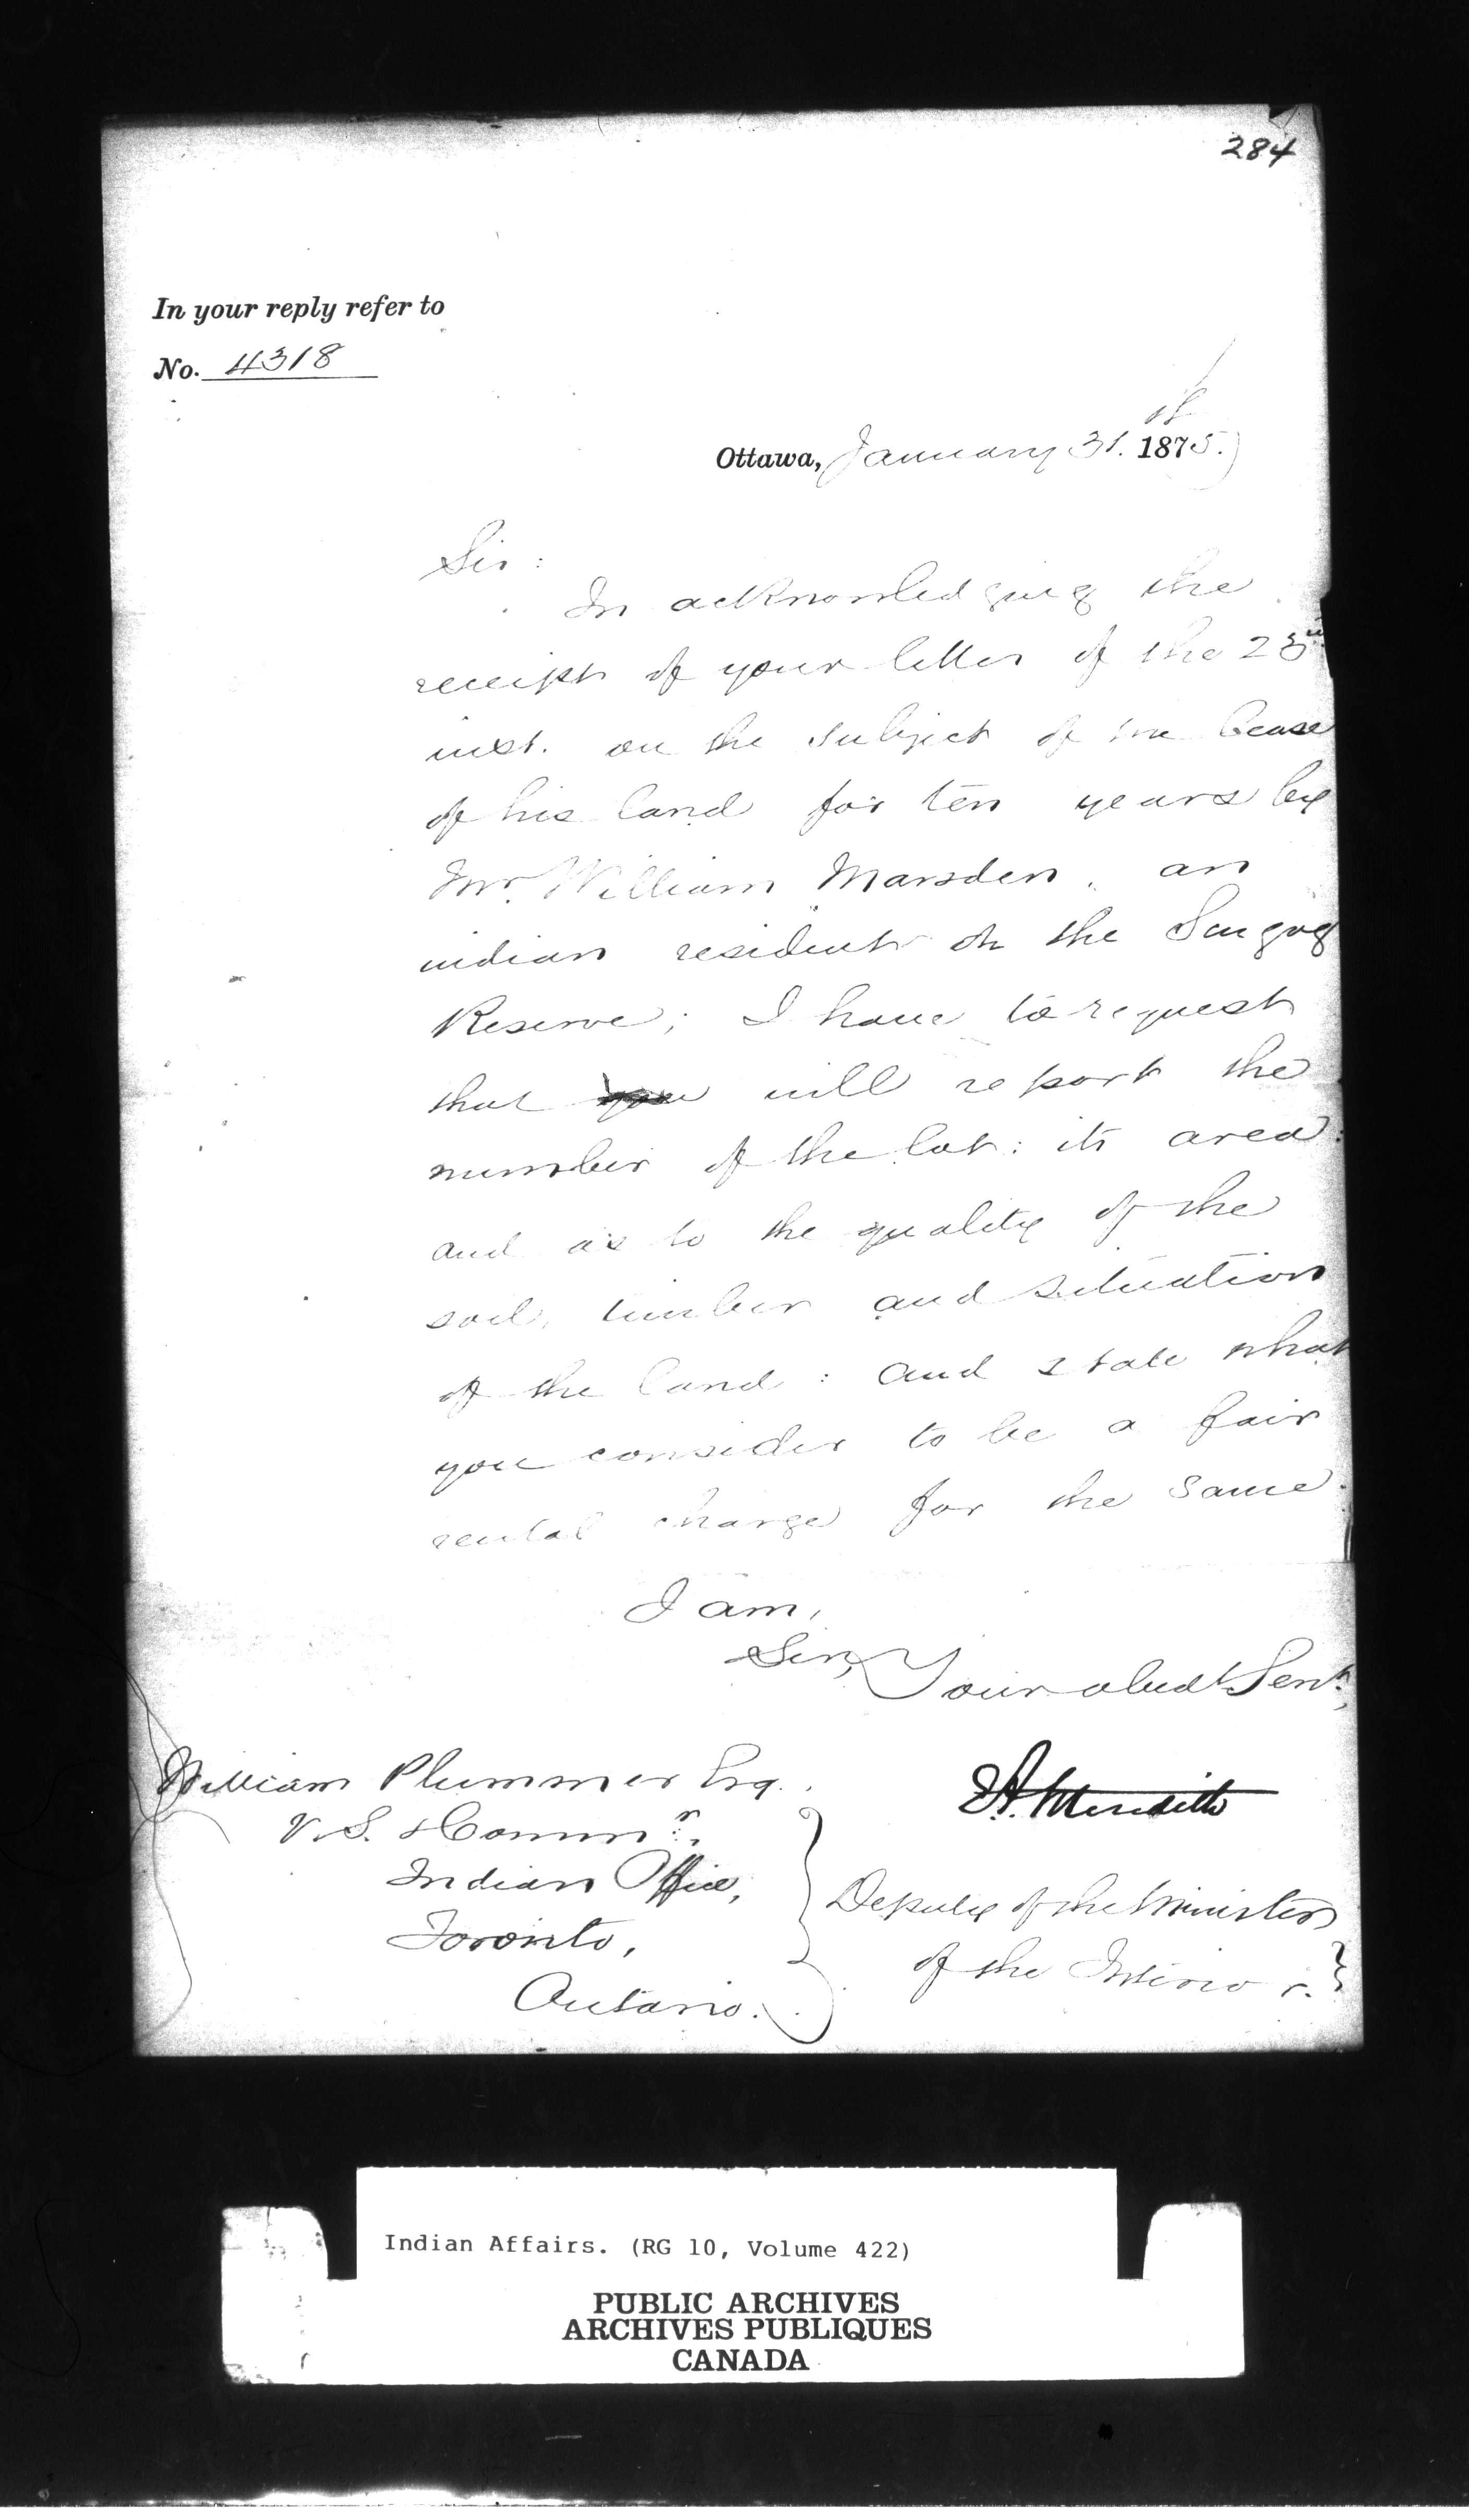 284
In your reply refer to
No. 4318
Ottawa, January 31st 1875.
Sir:
In acknowledging the
receipt of your letter of the 23rd
inst. on the subject of the lease
of his land for ten years by
Mr. William Marsden, an
indian resident on the Scugog
Reserve; I have to request
that you will report the
number of the lot: its area:
and as to the quality of the
soil, timber and situation
of the land: and state what
you consider to be a fair
rental charge for the same.
I am,
Sir,
Your obedt Servt,
E.A. Meredith
Deputy of the Minister
of the Interior.
William Plummer Esq.
V. S. & Commr.
Indian Office,
Toronto,
Ontario.
Indian Affairs. (RG 10, Volume 422)
PUBLIC ARCHIVES
ARCHIVES PUBLIQUES
CANADA